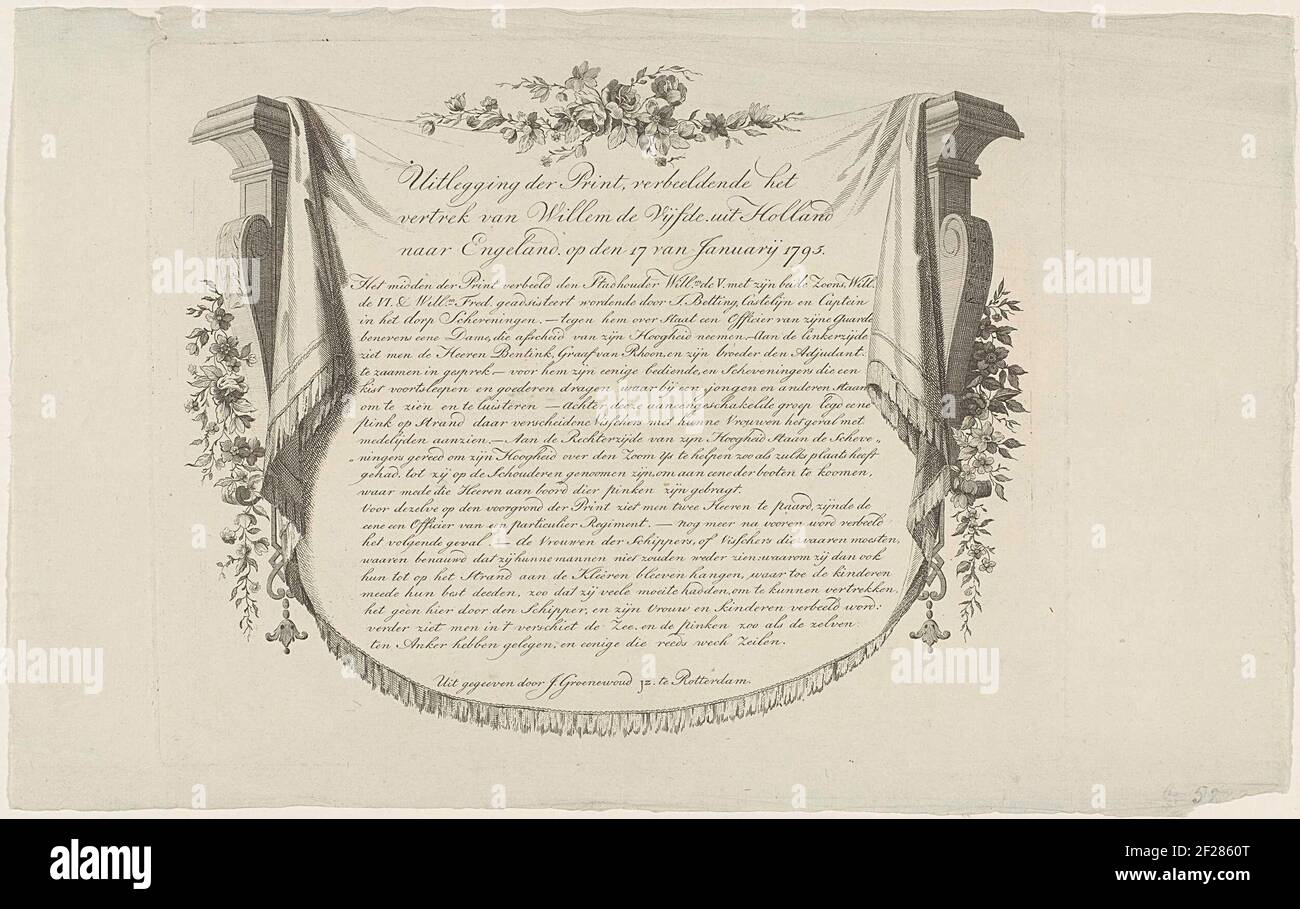 Uitlegging der Print, verbeeldende het
vertrek van Willem de Vyfde. uit Holland
naar Engeland. op den 17 van Januarij 1795.
Het midden der Print verbeeld den Stadhouder Will.m de V. met zijn beide Zoons, Will.
de VI. & Will.m Fred. geadsisteert wordende door J. Betting, Castelijn en Captein
in het dorp Scheveningen. — tegen hem over Staat een Officier van zijne Guarde
benevens eene Dame, die afscheid van zijn Hoogheid neemen. — Aan de linkerzijde
ziet men de Heeren Bentink, Graaf van Rhoon, en zijn broeder den Adjudant.
te zaamen in gesprek — voor hem zijn eenige bediende, en Scheveningers die een
kist voortsleepen en goederen dragen, waar bij een jongen en anderen Staan
om te zien en te luisteren — Achter deeze aaneengeschakelde groep legd eene
pink op Strand daar verscheidene Visschers met hunne Vrouwen het geval met
medelijden aanzien. — Aan de Rechterzijde van zyn Hoogheid Staan de Scheve„
„ningers gereed om zijn Hoogheid over den Zoom ys te helpen zoo als zulks plaats heeft
gehad. tot zij op de Schouderen genoomen zijn. om aan eene der booten te koomen,
waar mede die Heeren aan boord dier pinken zijn gebragt.
Voor dezelve op den voorgrond der Print ziet men twee Heeren te paard, zijnde de
eene een Officier van een particulier Regiment. — nog meer na vooren word verbeeld
het volgende geval — de Vrouwen der Schippers, of Visschers die vaaren moesten,
waaren benauwd dat zij hunne mannen niet zouden weder zien: waarom zij dan ook
hun tot op het Strand aan de Kleêren bleeven hangen, waar toe de kinderen
meede hun best deeden, zoo dat zij veele moeite hadden, om te kunnen vertrekken,
het geen hier door den Schipper, en zijn Vrouw en kinderen verbeeld word:
verder ziet men in't verschiet de Zee. en de pinken zoo als de zelven
ten Anker hebben gelegen, en eenige die reeds wech zeilen.
Uit gegeeven door J. Groenewoud Jz. te Rotterdam.
alamy
Image ID: 2F2860T
www.alamy.com